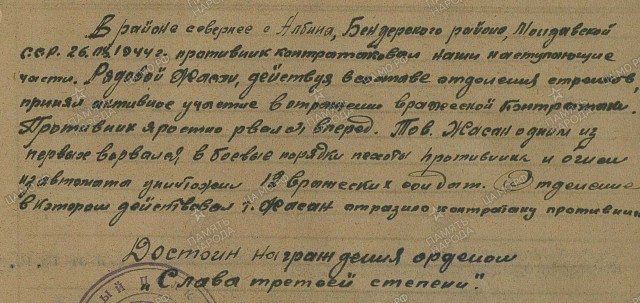 В районе севернее с Албина, Бендерского района, Молдавской
ССР. 26.08.1944г. противник контратаковал наши наступающие
части. Рядовой Жасан, действуя в составе отделения стрелков,
принял активное участие в отражении вражеской контратаки.
Противник яростно рвался вперед. Тов. Жасан одним из
первых ворвался в боевые порядки пехоты противника и огнем
из автомата уничтожил вражеских солдат. Отделение
в котором действовал т. Жасан отразило контратаку противника
Достоин награждения орденом
„Слава третьей степени".